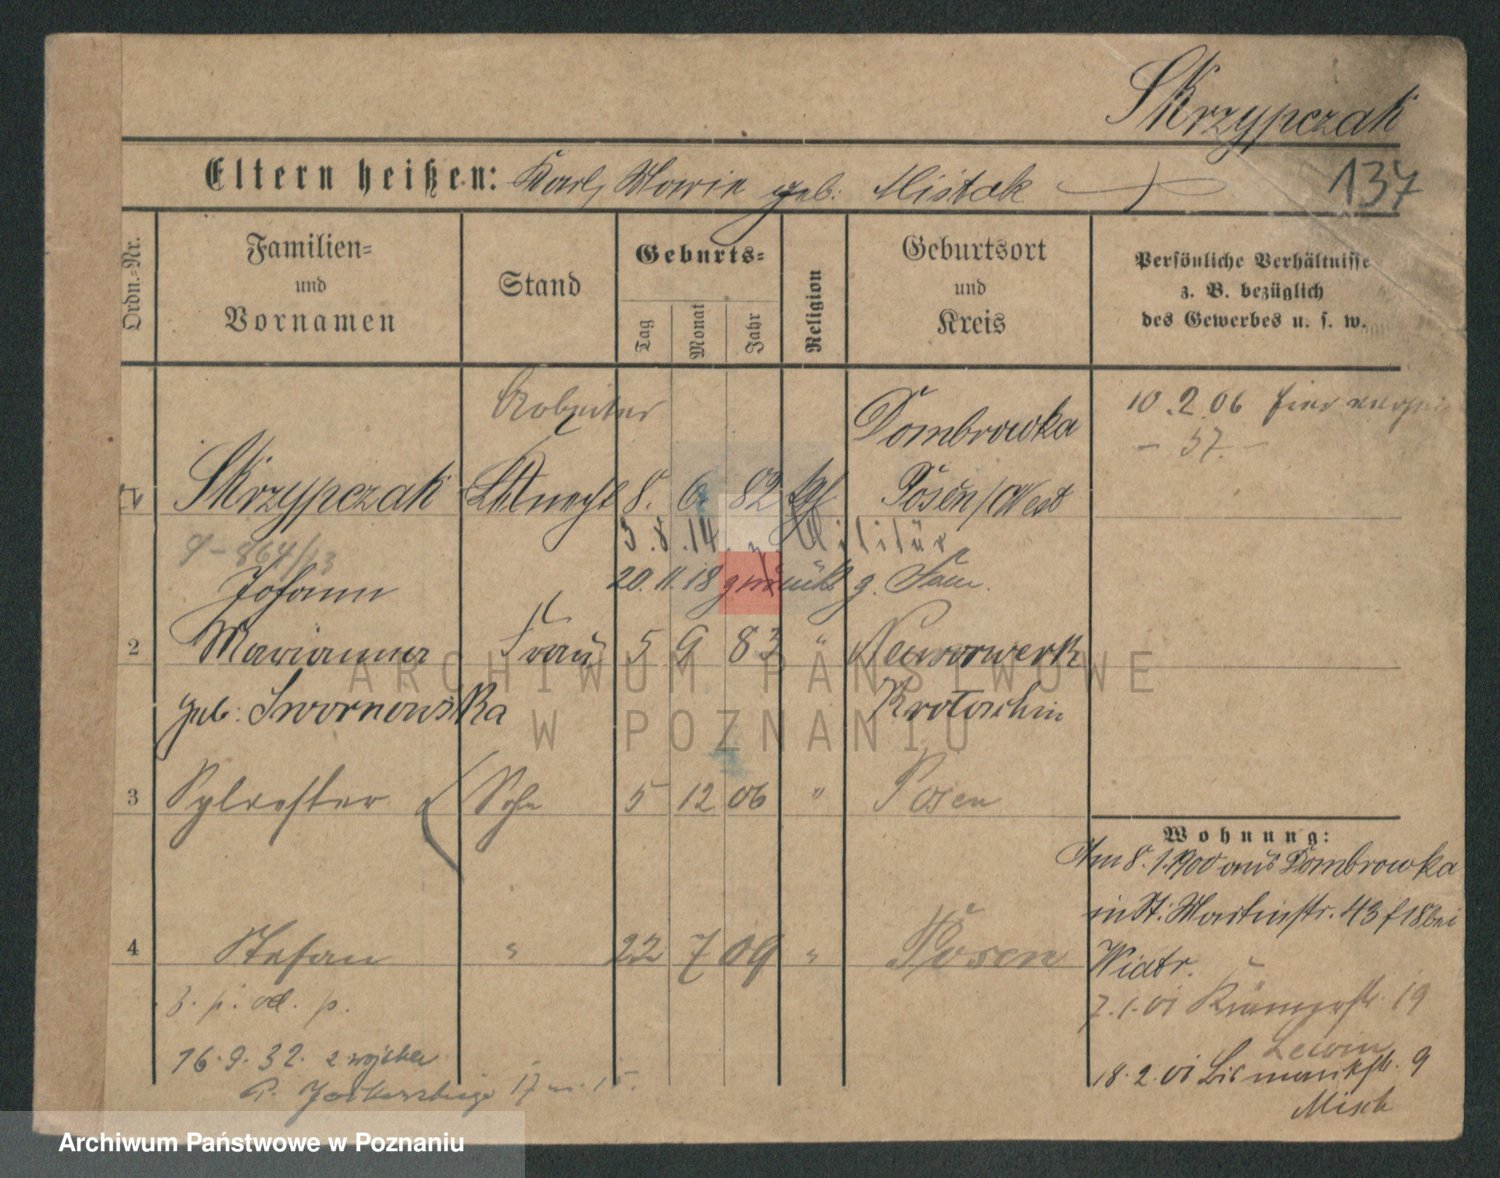 Skrzypczak
Eltern heißen: Karl, Marie geb. Mistak
137
Ordn.-Nr.
Familien- und Vornamen
Stand
Geburts-
Tag Monat Jahr
Religion
Geburtsort und Kreis
Persönliche Verhältnisse
z. B. bezüglich
des Gewerbes u. s. w.
Arbeiter
Dombrowka
10.2.06
- 37. -
1 Skrzypczak 8. 6 82 kth Posen/West
3.8.14 z. Militär
Johann 20.11.18 zurück
2 Marianna Frau 5 9 83 " Neuvorwerk
geb: Iwornowska Krotoschin
3 Sylvester Sohn 5 12 06 " Posen
Wohnung:
Am 8.1.1900 aus Dombrowka
in St. Martinstr. 43 f 18 bei
4 Stefan " 22 7 09 " Posen
Wiatr.
3. p. od. p.
7.1.01 Krämerstr. 19
Lewin
16.9.32.
18.2.01 Bismarckstr. 9
Misch
ARCHIWUM PAŃSTWOWE
W POZNANIU
Archiwum Państwowe w Poznaniu